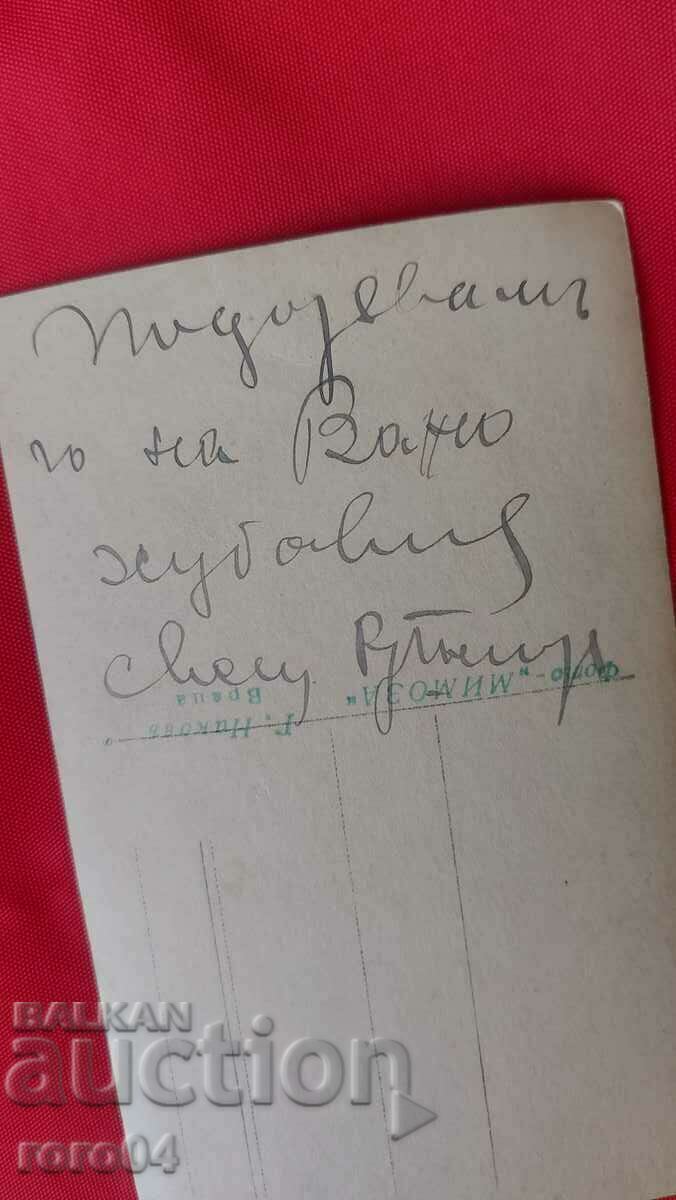 Подозрѣвамъ
го на Ваню
хубавия
Фото-„МИМОЗА"
Г. Никовъ
Враца
BALKAN
auction
roro04